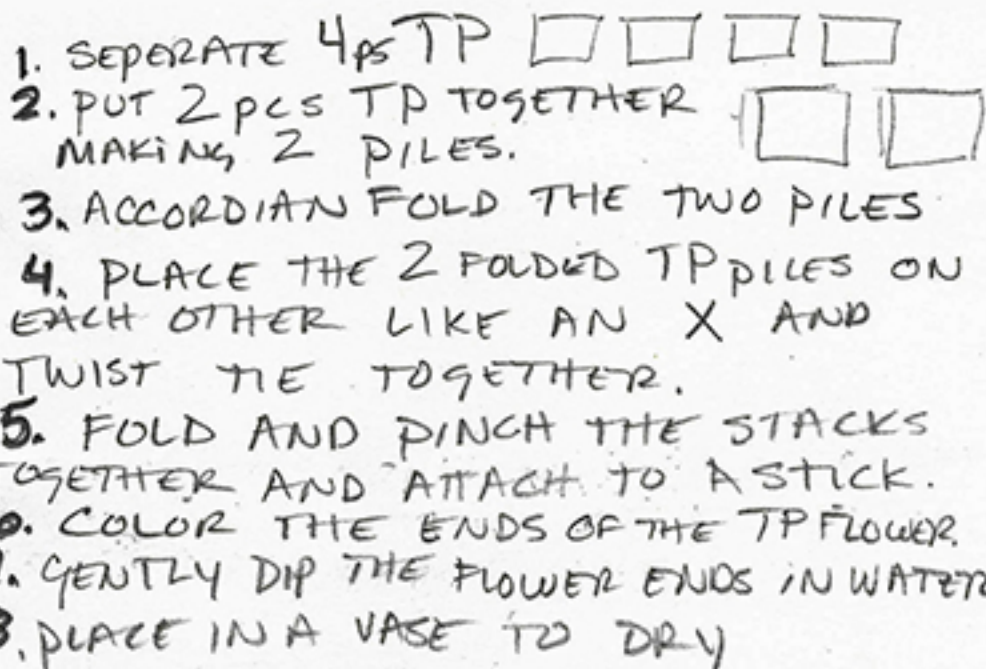 1. SEPERATE 4ps TP
2. PUT 2 pcs TP TOGETHER
MAKING 2 PILES.
3. ACCORDIAN FOLD THE TWO PILES
4. PLACE THE 2 FOLDED TP PILES ON
EACH OTHER LIKE AN X AND
TWIST TIE TOGETHER.
5. FOLD AND PINCH THE STACKS
TOGETHER AND ATTACH TO A STICK.
6. COLOR THE ENDS OF THE TP FLOWER.
7. GENTLY DIP THE FLOWER ENDS IN WATER
8. PLACE IN A VASE TO DRY